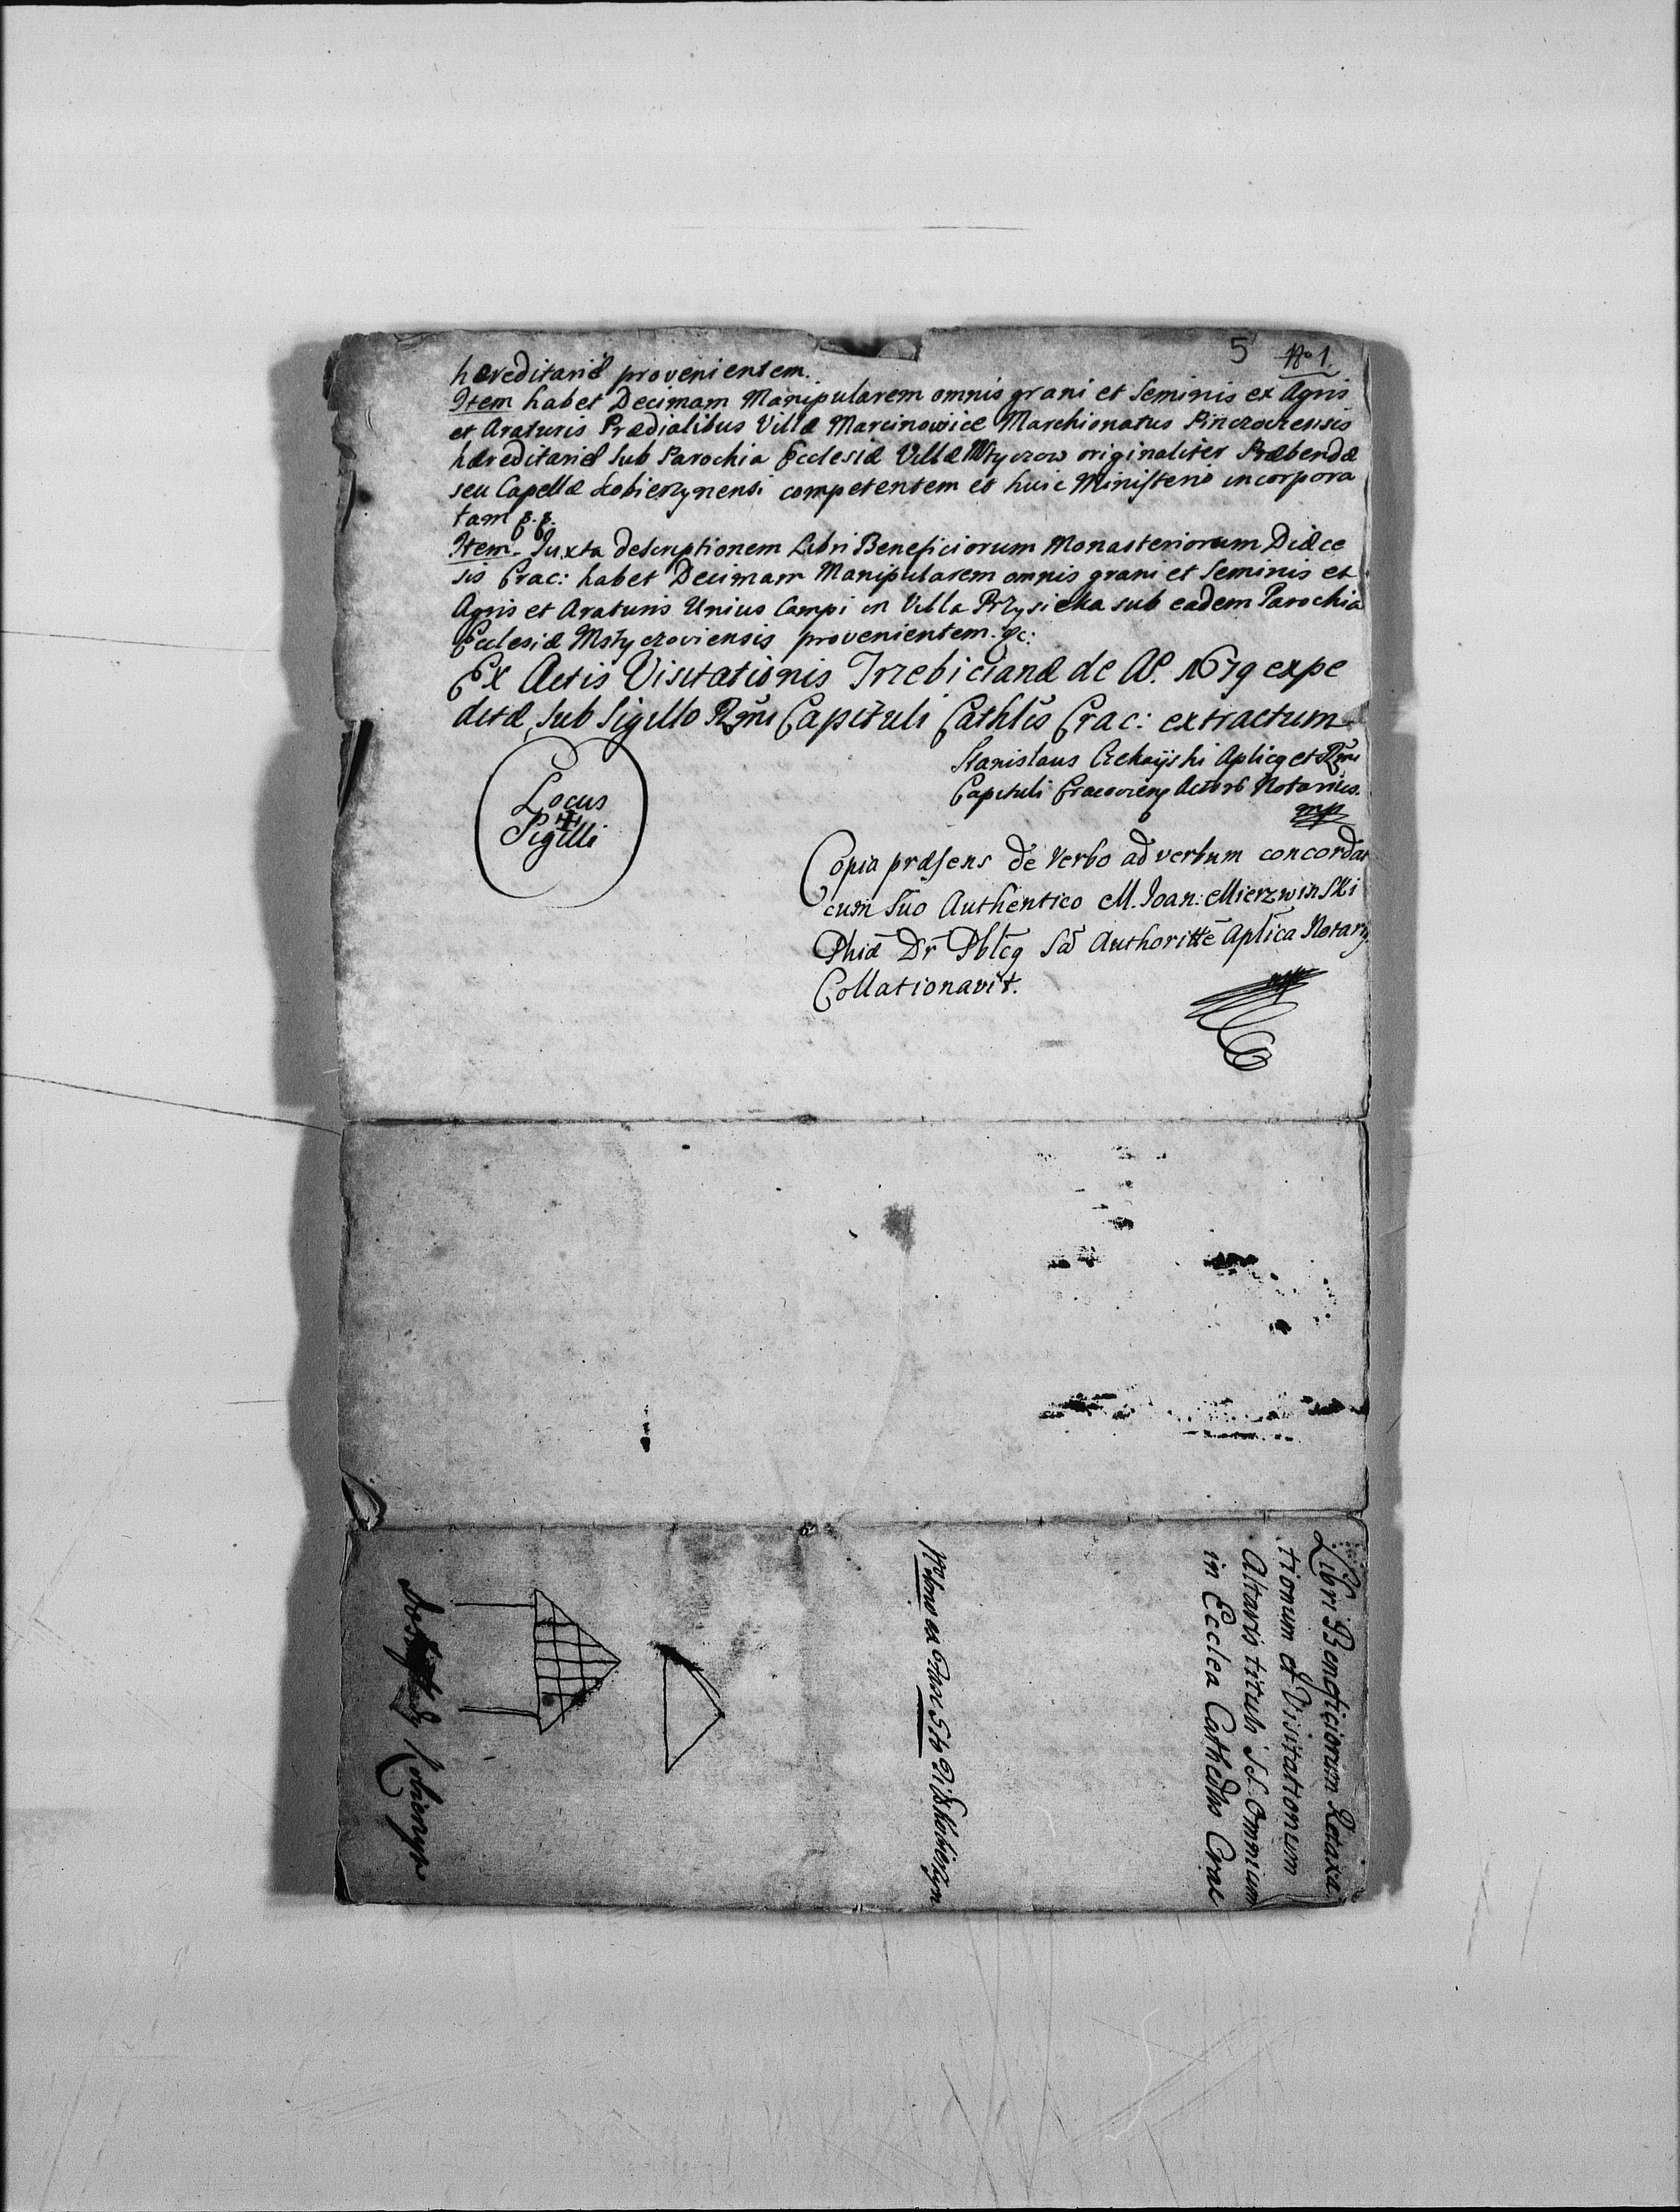 5 No 1.
hæreditariæ provenientem.
Item habet Decimam Manipularem omnis grani et Seminis ex Agris
et Araturis Prædialibus Villæ Marcinowice Marchionatus Pinczoviensis
hæreditariæ sub Parochia Ecclesiæ Villæ Mstyczow originaliter Præbendæ
seu Capellæ Kobierzynensi competentem et huic Ministerio incorpora
tam
Item. Juxta descriptionem Libri Beneficiorum Monasteriorum Diæce
sis Crac: habet Decimam Manipularem omnis grani et Seminis et
Agris et Araturis Unius Campi in Villa Przysieka sub eadem Parochia
Ecclesiæ Mstyczoviensis provenientem. &c:
Ex Actis Visitationis Trzebicianæ de Ao. 1679 expe
ditæ, sub Sigillo Rmi Capituli Cathlis Crac: extractum
Stanislaus Aplicq et Rmi
Capituli Cracovien Notarius.
mp
Locus
Sigilli
Copia præsens de Verbo ad verbum concordat
cum suo Authentico M. Joan: Mierzwinski
Phiæ Dr Pblcq Sa Authoritte Aplica Notarq
Collationavit.
Libri Beneficiorum Retaxa
tionum et Visitationum
Altaris tituli SS. Omnium
in Ecclea Cathedlis Crac
Kobierzyn